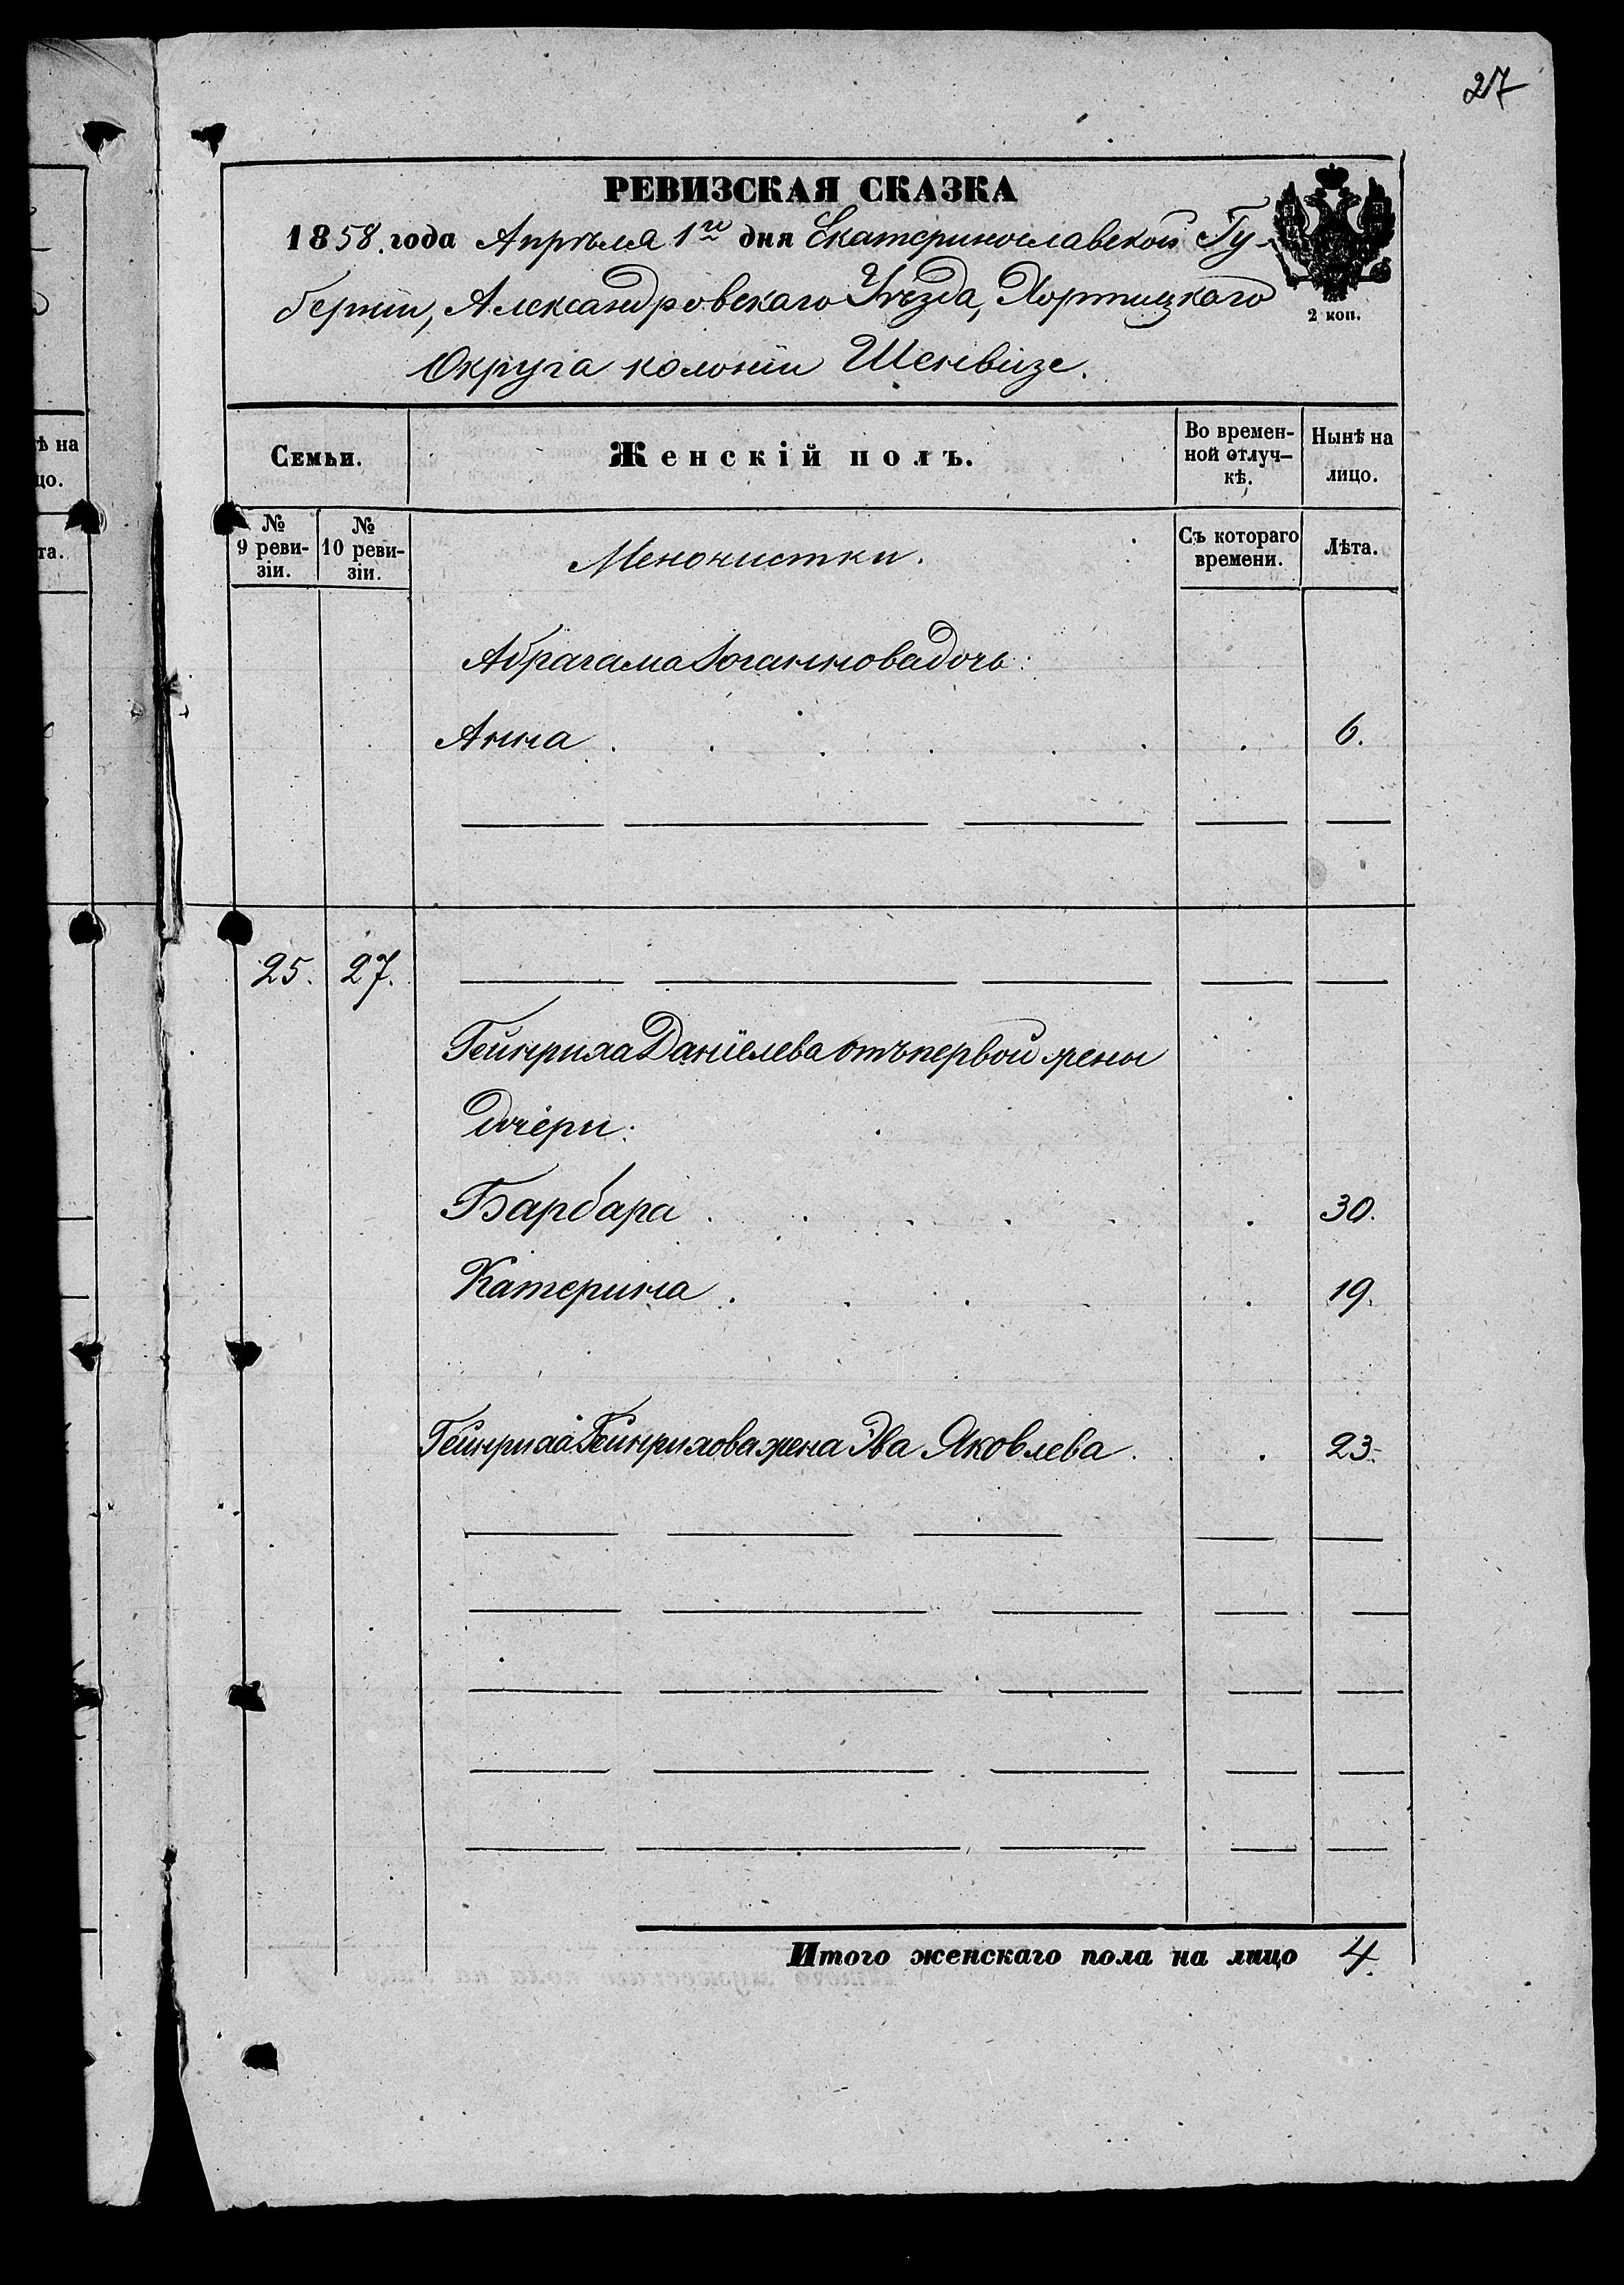 27
РЕВИЗСКАЯ СКАЗКА
1858. года Апрѣля 1го дня Екатеринославской Гу-
берніи, Александровскаго Уѣзда, Хортицкаго
Округа колоніи Шенвизе.
2 коп.
Семьи.
Женскій полъ.
Во времен-
ной отлуч-
кѣ.
Нынѣ на
лицо.
№
9 реви-
зіи.
№
10 реви-
зіи.
Менонистки.
Съ котораго
времени.
Лѣта.
Абрагама Іоганнова дочь:
Анна 6.
25. 27.
Гейнриха Даніелева отъ первой жены
дочери:
Барбара 30.
Катерина 19.
Гейнриха Гейнрихова жена Эва Яковлева 23.
Итого женскаго пола на лицо 4.
ѣ на
цо.
та.